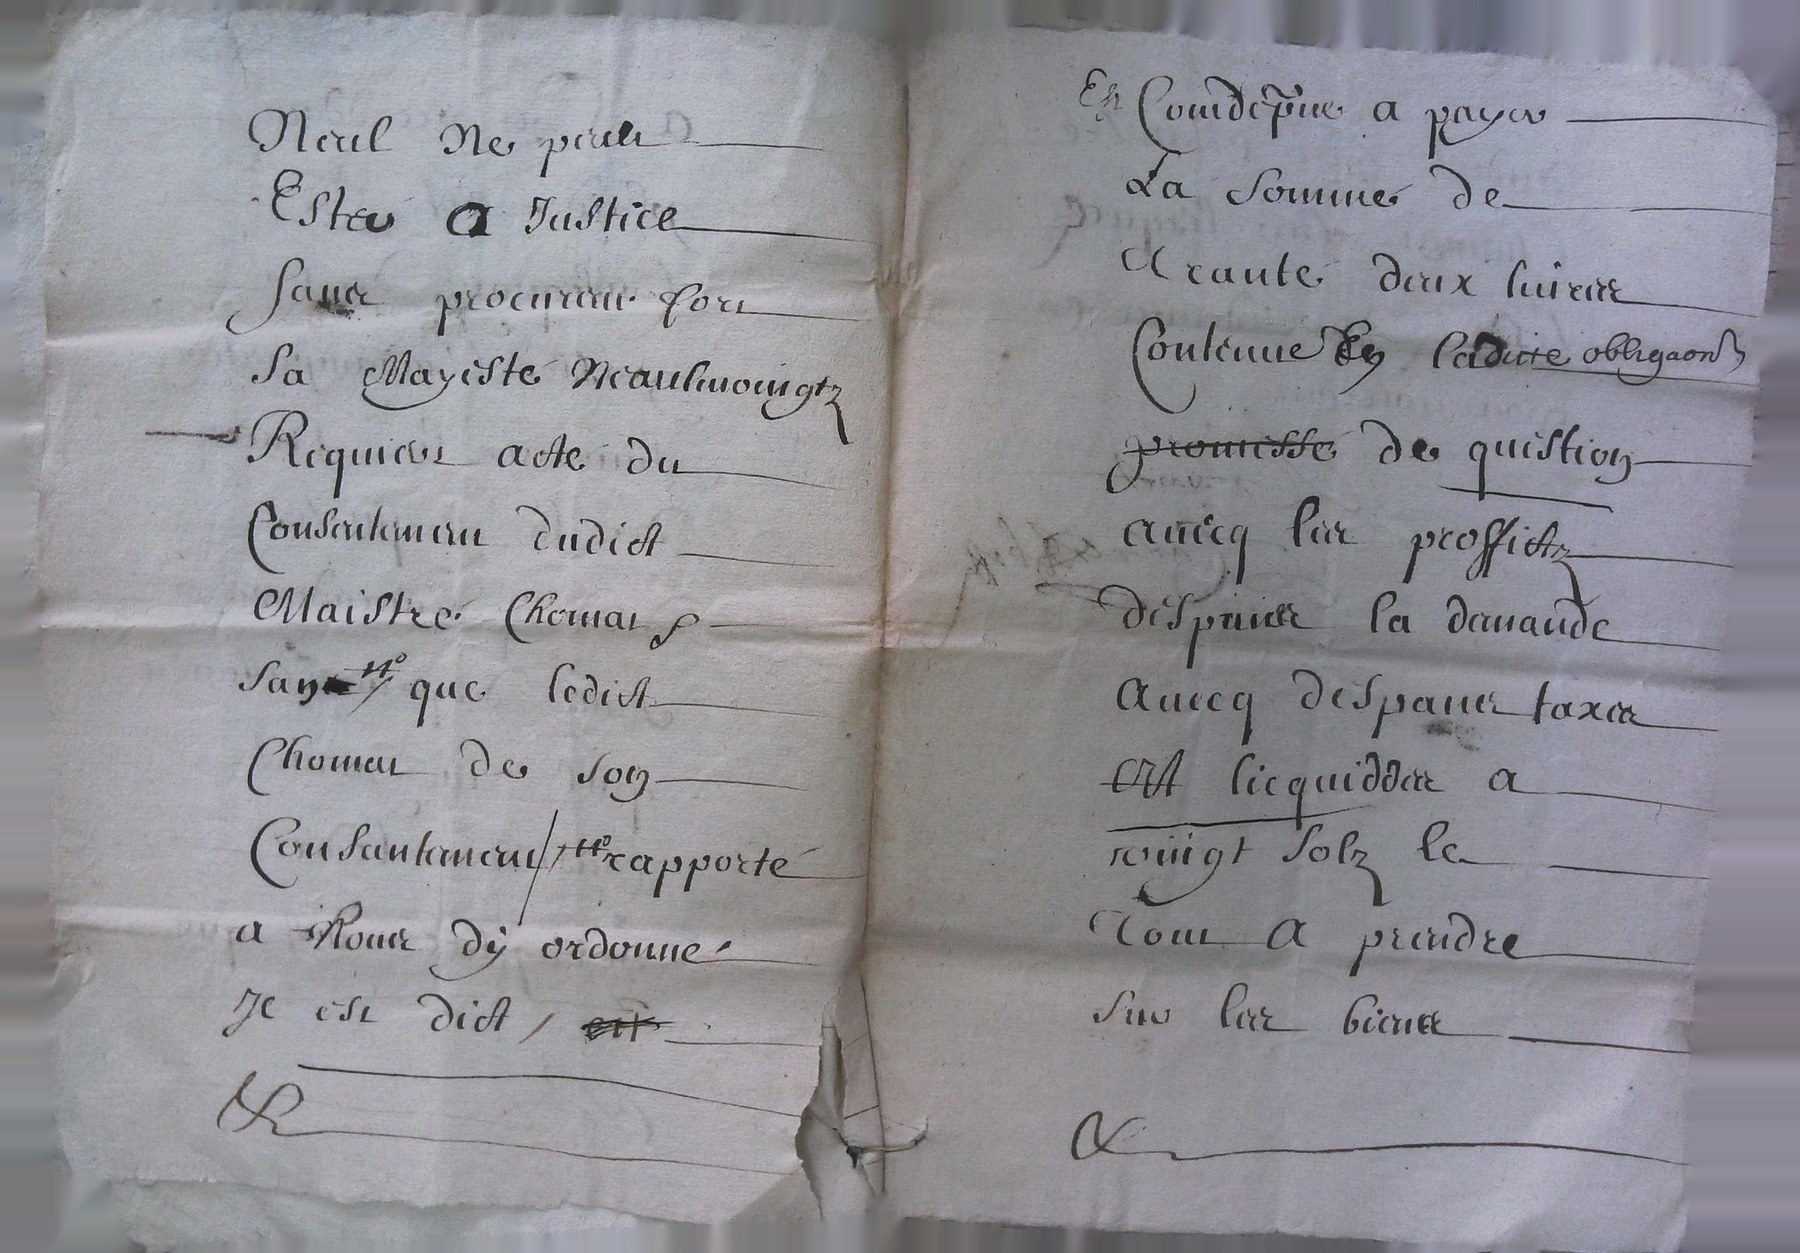 Neul Ne peult
Ester a Justice
sans procureur fors
sa Mayesté Neaulmoingtz
Requiert acte du
Consentement dudict
Maistre Thomas
que ledict
Thomas de son
Consantement rapporté
a Nous dy ordonne
Je est dict
&
Est Condempne a payer
La somme de
trante deux livres
Contenue En ladicte obligaon
promesse de question
avecq les proffictz
despuis la demande
avecq despans taxes
et licquiddes a
vingt solz le
Tout a prendre
sur les biens
&